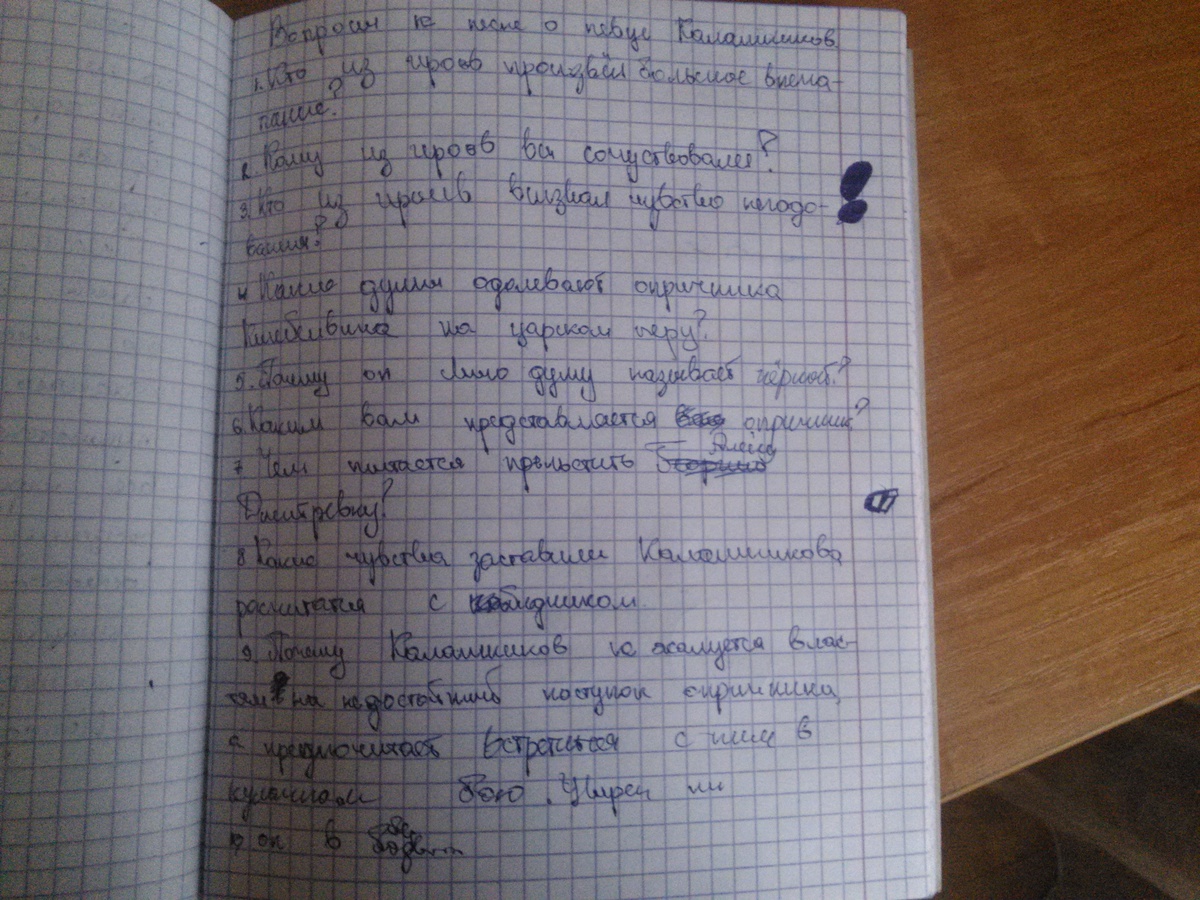 Вопросы к песне о певце Калашников
1. Кто из героев произвёл большое впеча-
тление?
2. Кому из героев вы сочуствовали?
3. Кто из героев вызвал чувство негодо-
вания?
4 Какие думы одолевают опричника
Кирибеевича на царском пиру?
5. Почему он думу называет чёрной?
6. Каким вам представляется опричник?
7 Чем пытается прельстить Алёну
Дмитревну?
8 Какие чувства заставили Калашникова
расчитатся с обидчиком.
9. Почему Калашников не жалуется влас-
тям на недостойный поступок опричника,
а предпочитает встретиться с ним в
кулачном бою. Уверен ли
он в